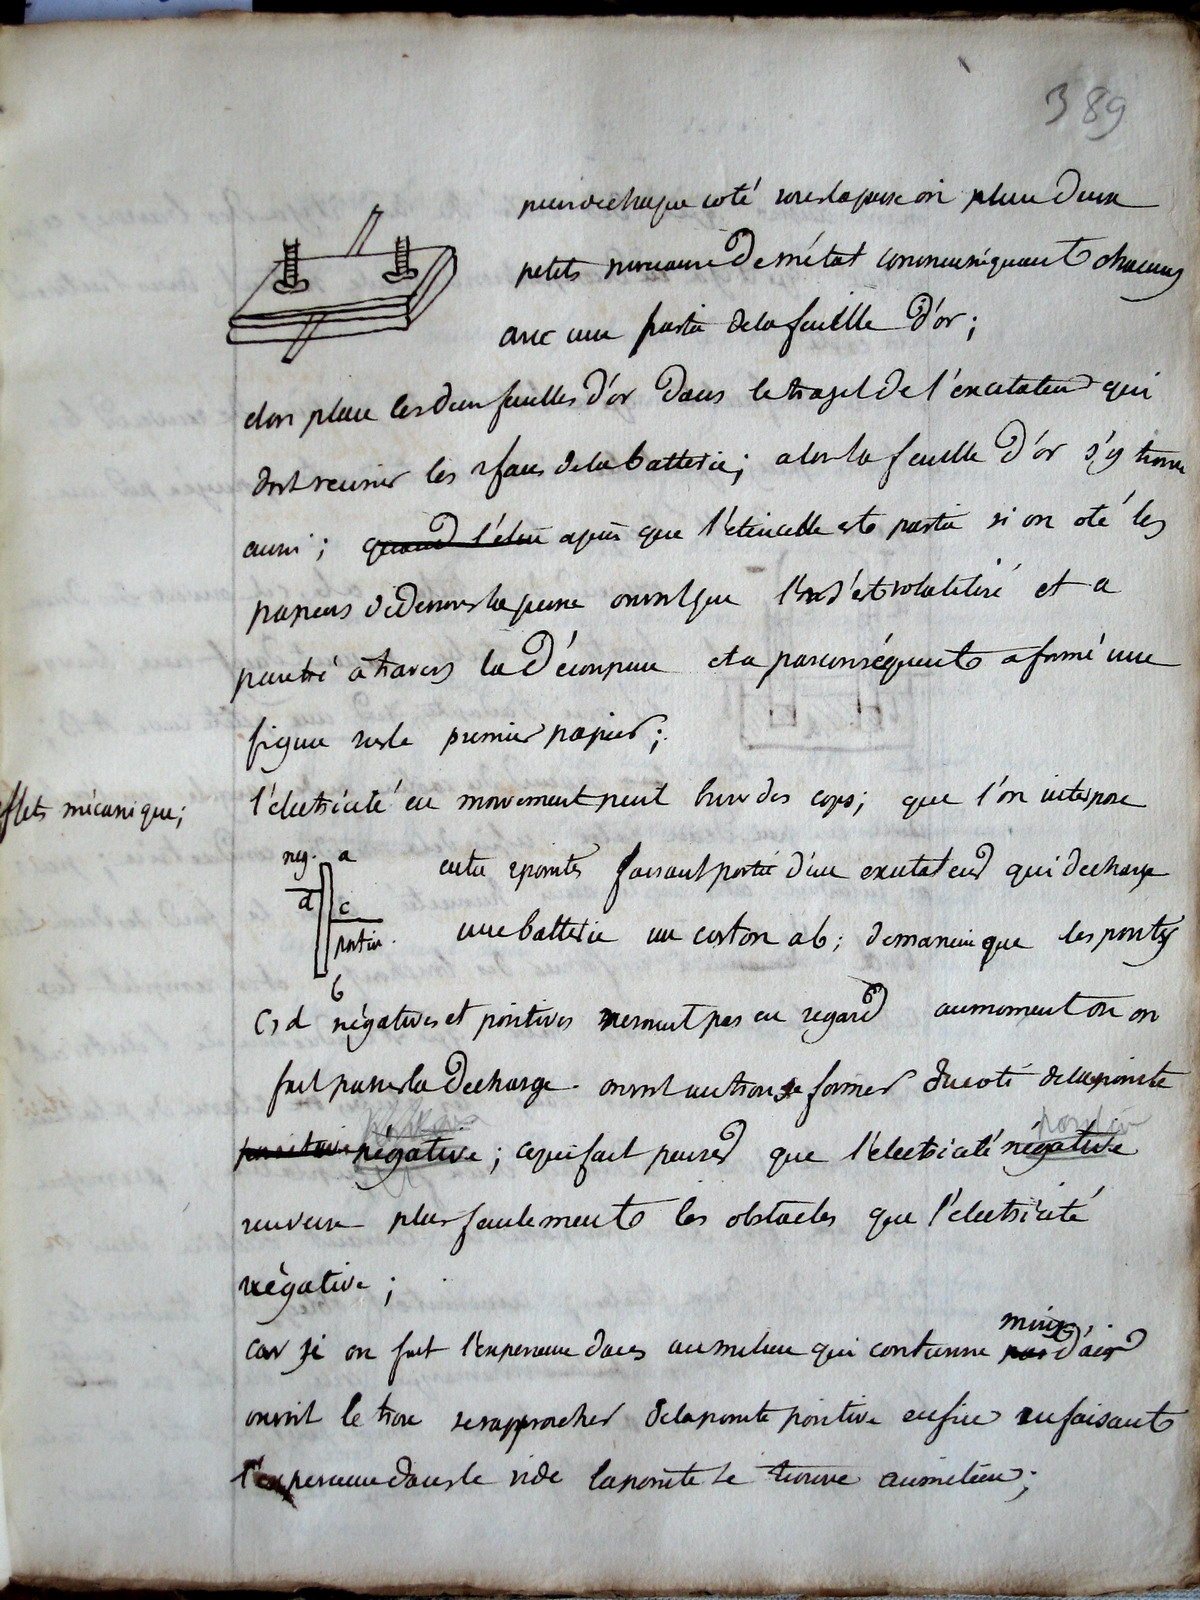 389
puis de chaque coté sous la presse on place deux
petits morceaux de métal communiquant chacuns
avec une partie de la feuille d'or;
et on place les deux feuilles d'or dans le trajet de l'excitateur qui
doit reunir les 2 faces de la batterie; alors la feuille d'or s'y trouve
aussi; quand l'étin apres que l'étincelle est partie si on ote les
papiers de dessous la presse on voit que l'or s'est volatilisé et a
penetré à travers la découpure et a par conséquent a formé une
figure sur le premier papier;
effets mécanique;
l'électricité en mouvement peut briser des corps; que l'on interpose
neg. a
entre 2 pointes faisant partie d'un excitateur qui decharge
d c
une batterie un carton ab; de maniere que les pointes
positiv.
b
c, d négatives et positives ne soient pas en regard au moment ou on
fait passer la decharge. on voit un trou se former du coté de la pointe
positive
positive négative; ce qui fait penser que l'électricité négative
renverse plus facilement les obstacles que l'électricité
négative;
moins
car si on fait l'experience dans un milieu qui contienne pas d'air
on voit le trou se rapprocher de la pointe positive enfin en faisant
l'experience dans le vide la pointe se trouve au milieu;